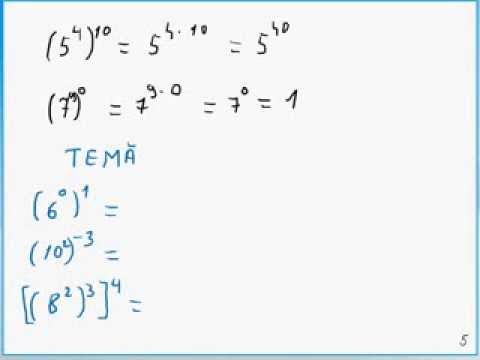 (5⁴)¹⁰ = 5⁴·¹⁰ = 5⁴⁰
(7⁹)⁰ = 7⁹·⁰ = 7⁰ = 1
TEMĂ
(6⁰)¹ =
(10²)⁻³ =
[(8²)³]⁴ =
5